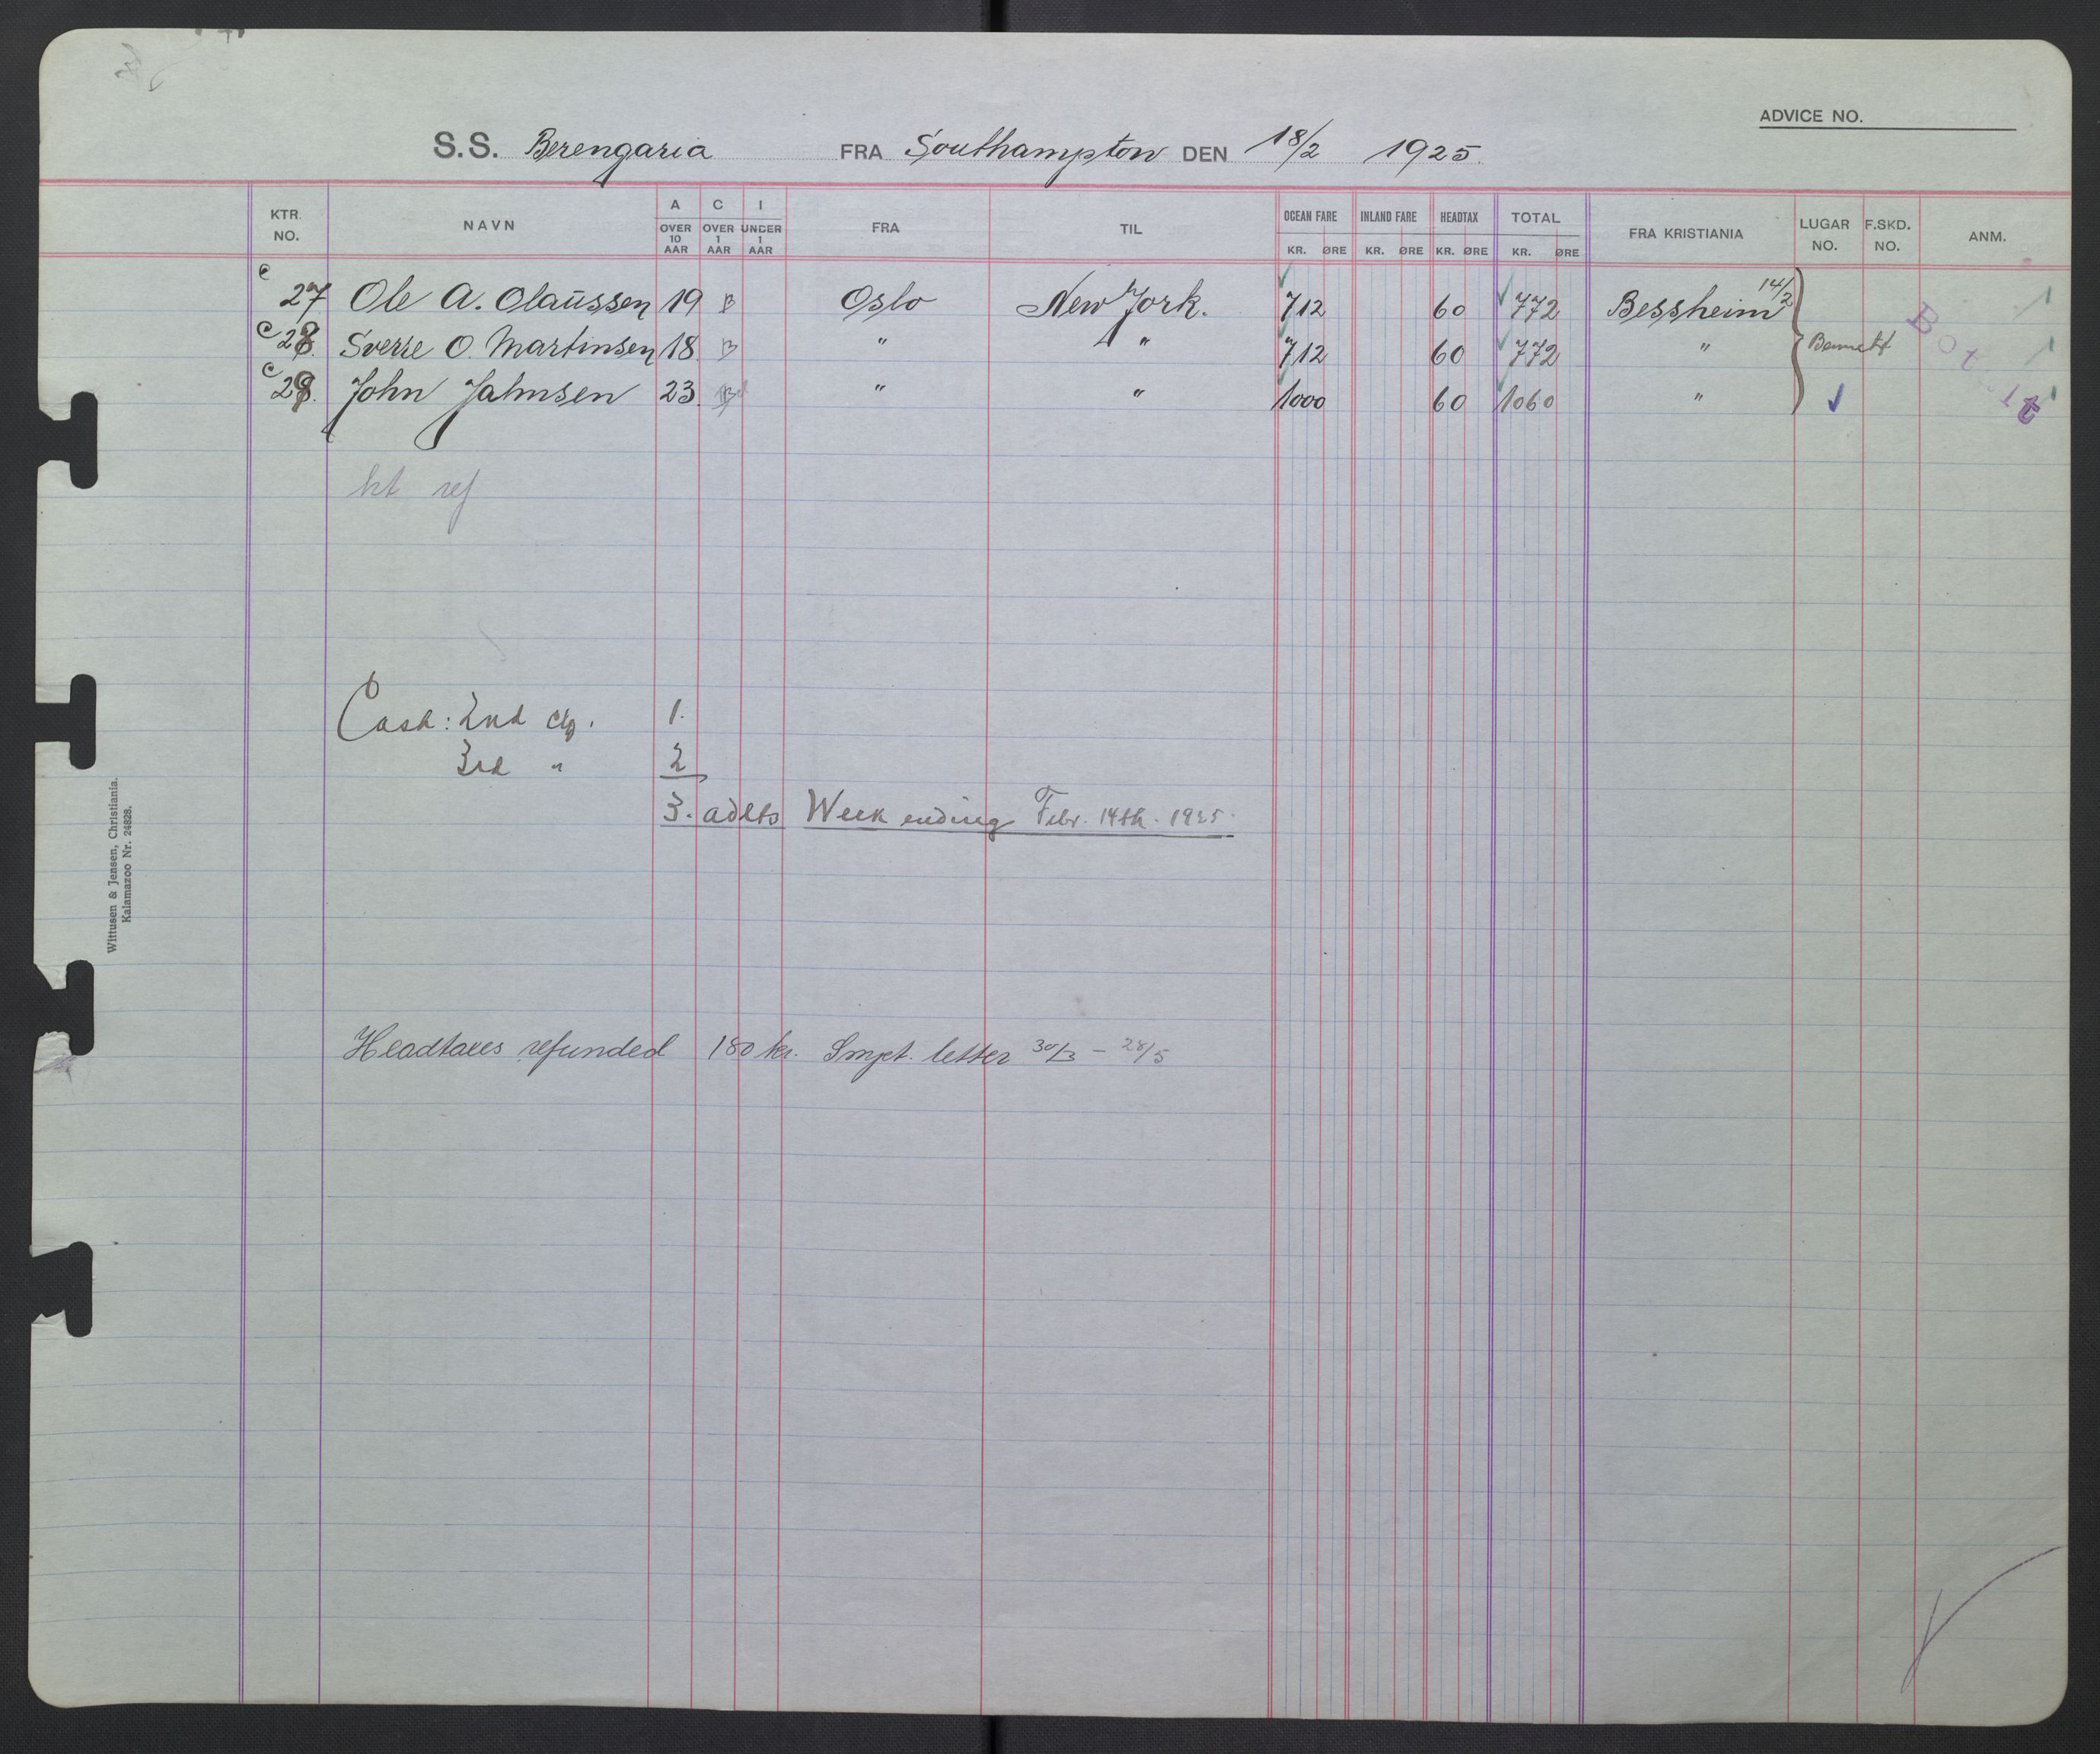 ADVICE NO.
S.S. Berengaria FRA Southampton DEN 18/2 1925.
KTR. NO. NAVN A OVER 10 AAR C OVER 1 AAR I UNDER 1 AAR FRA TIL OCEAN FARE KR. ØRE INLAND FARE KR. ØRE HEADTAX KR. ØRE TOTAL KR. ØRE FRA KRISTIANIA LUGAR NO. F.SKD. NO. ANM.
c 27 Ole A. Olaussen 19 B Oslo New York. 712 60 772 Bessheim 14/2
c 28. Sverre O. Martinsen 18 B " " 712 60 772 " Bennett
c 29. John Jahnsen 23. " " 1000 60 1060 "
ht ref
Cash: 2nd 1.
3rd " 2
3. adlts Week ending Febr. 14th. 1925.
Headtaxes refunded 180 kr. Smpt. letter 30/3 – 28/5
Wittusen & Jensen, Christiania.
Kalamazoo Nr. 24828.